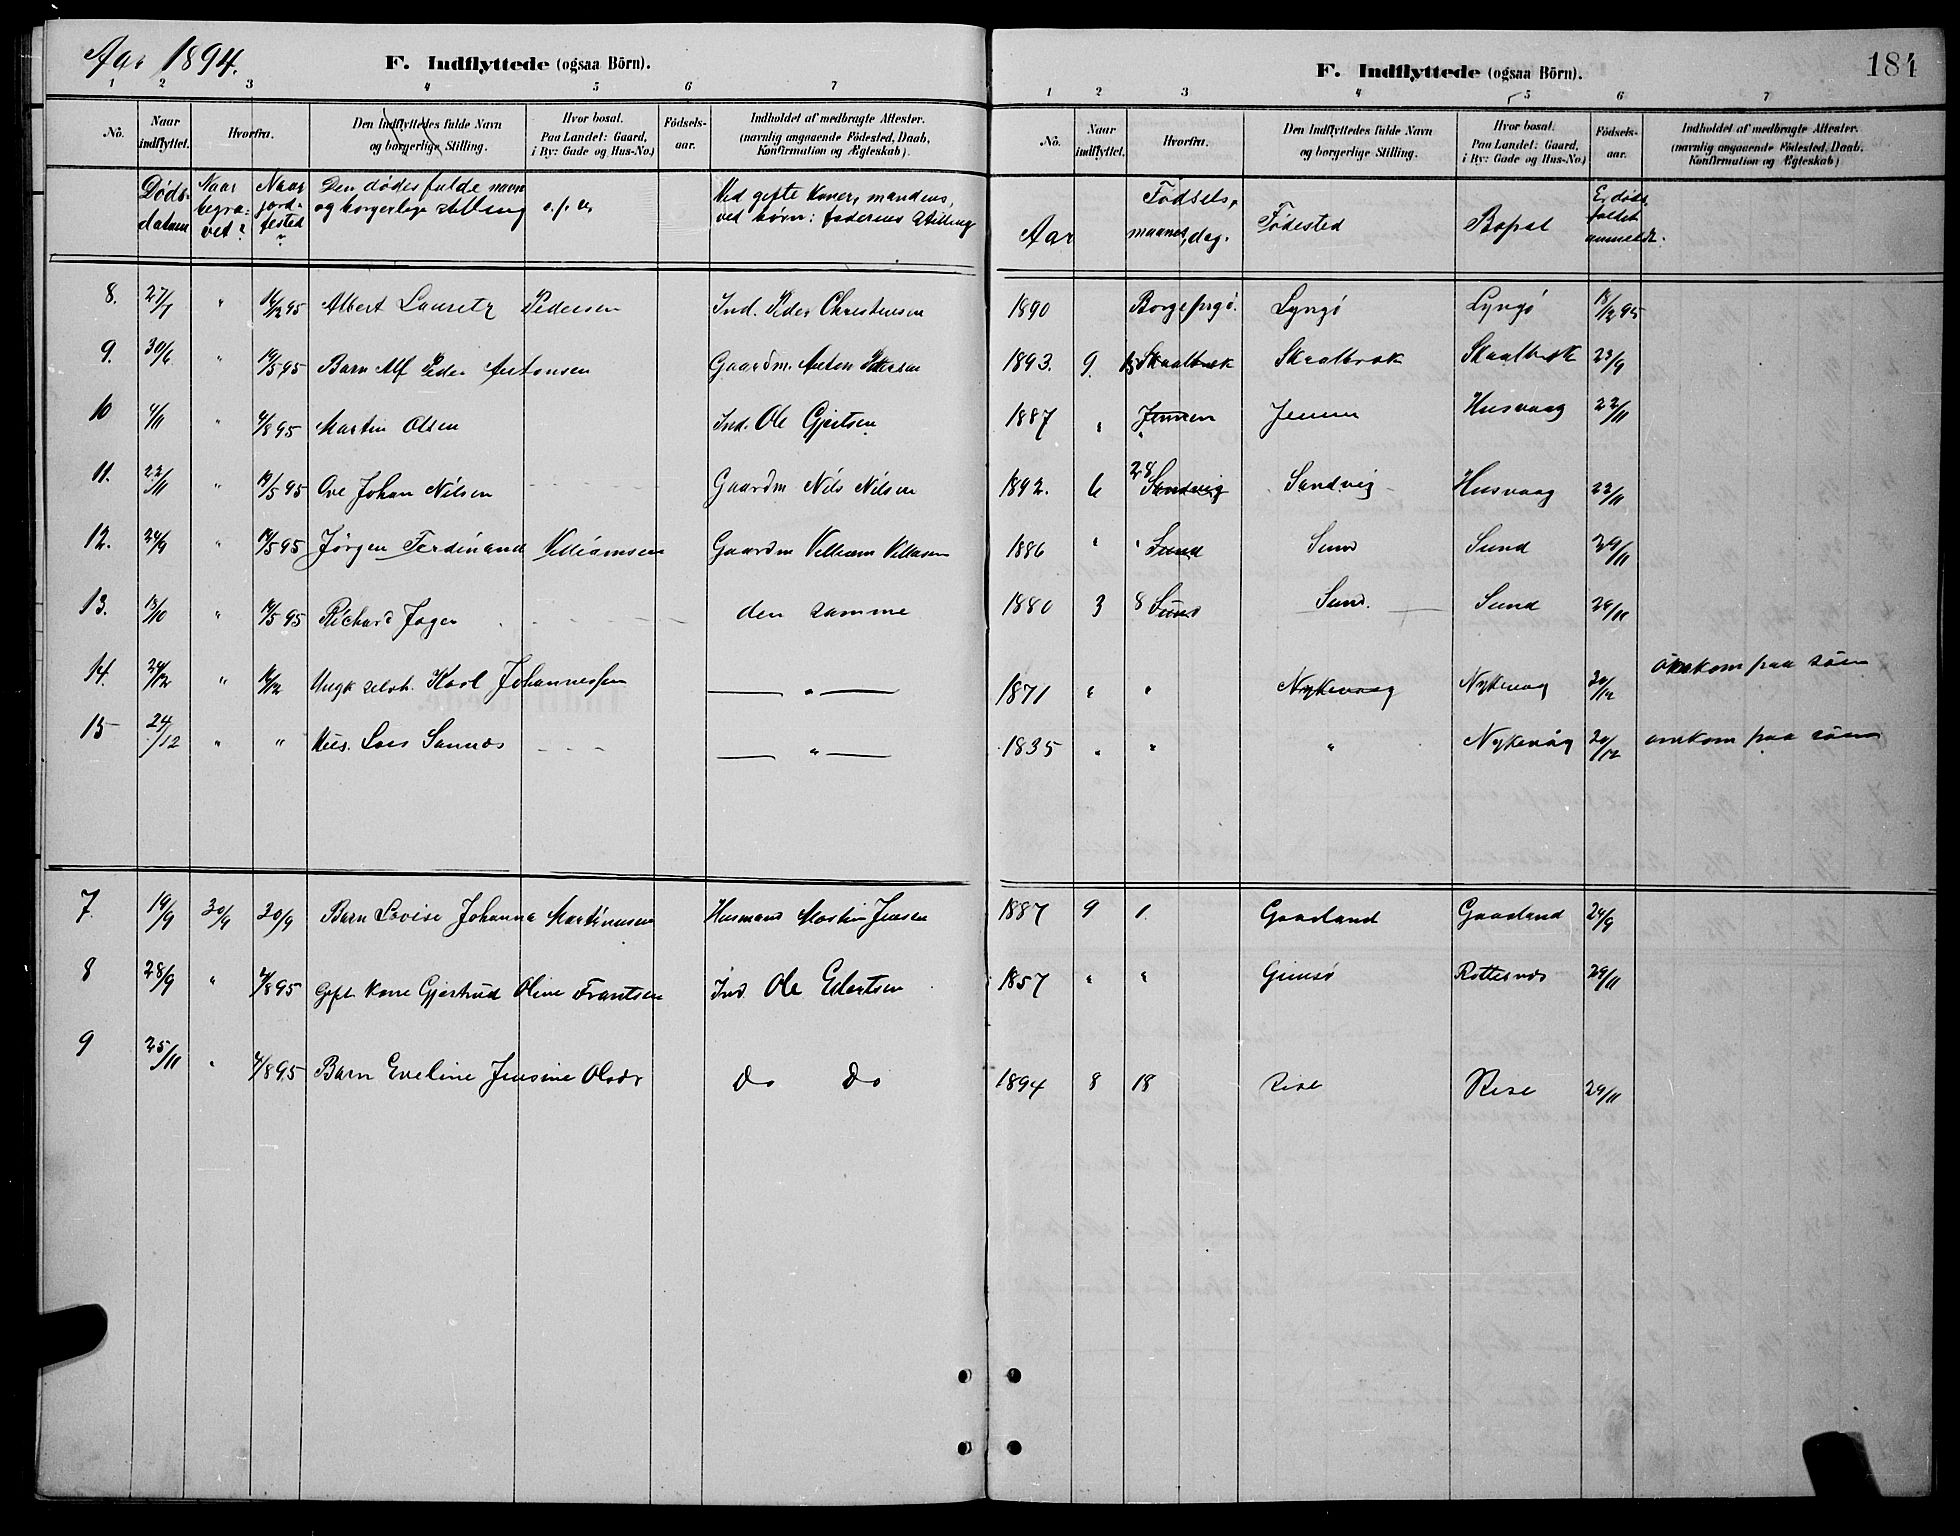 Aar 1894.
F. Indflyttede (ogsaa Börn).
1 2 3 4 5 6 7
No. Naar indflyttet. Hvorfra. Den Indflyttedes fulde Navn og borgerlige Stilling. Hvor bosat. Paa Landet: Gaard, i By: Gade og Hus-No.) Födsels-aar. Indholdet af medbragte Attester. (navnlig angaaende Födested, Daab, Konfirmation og Ægteskab).
Døds-datum Naar begra-vet? Naar jord-fested? Den dødes fulde navn og borgerlige stilling o.s.v. Ved gifte Koner, mandens, ved børn: faderens Stilling
8. 27/7 " 16/12 95 Albert Lauretz Pedersen Ind. Peder Christensen
9. 30/6 " 19/5 95 Barn Alf Peder Antonsen Gaardm. Anton
10 4/11 " 4/8 95 Martin Olsen Ind. Ole Gjertsen
11. 22/11 " 19/5 95 Ove Johan Nilsen Gaardm Nils Nilsen
12. 24/9 " 19/5 95 Jørgen Ferdinand Villiamsen Gaardm Villiam
13. 13/10 " 19/5 95 Richard den samme
14. 24/12 " Ungk Karl Johannessen — " —
15 24/12 " " — " —
7. 19/9 30/9 30/9 Barn Lovise Johanna Martinussen Husmand Martin Jensen
8 28/9 " 4/8 95 Gift Kone Gjertrud Oline Frantsen Ind. Ole Edertsen
9 25/11 " 4/8 95 Barn Eveline Jensine Olsdr Do Do
F. Indflyttede (ogsaa Börn).
184
1 2 3 4 5 6 7
No. Naar indflyttet. Hvorfra. Den Indflyttedes fulde Navn og borgerlige Stilling. Hvor bosat. Paa Landet: Gaard, i By: Gade og Hus-No.) Födsels-aar. Indholdet af medbragte Attester. (navnlig angaaende Födested, Daab, Konfirmation og Ægteskab)
Aar Fødsels, maaned, dag. Fødested Bopæl Er døds faldet anmeldt.
1890 Lyngø Lyngø 18/12 95
1893. 9. 15 Skaalbrek Skaalbrek Skaalbrek 23/9
1887 " Jennen Jennen Husvaag 22/11
1892. 6 28 Sandvig Sandvig Husvaag 22/11
1886 " " Sund Sund Sund 29/11
1880 3 8 Sund Sund. Sund 29/11
1871 " " Nykevaag Nykevaag 20/12 omkom paa søen
1835 " " " Nykevaag 20/12 omkom paa søen
1887 9 1. Gaasland Gaasland 24/9
1857 " " Gimsø Rottesnæs 29/11
1894 8 18 Rise Rise 29/11